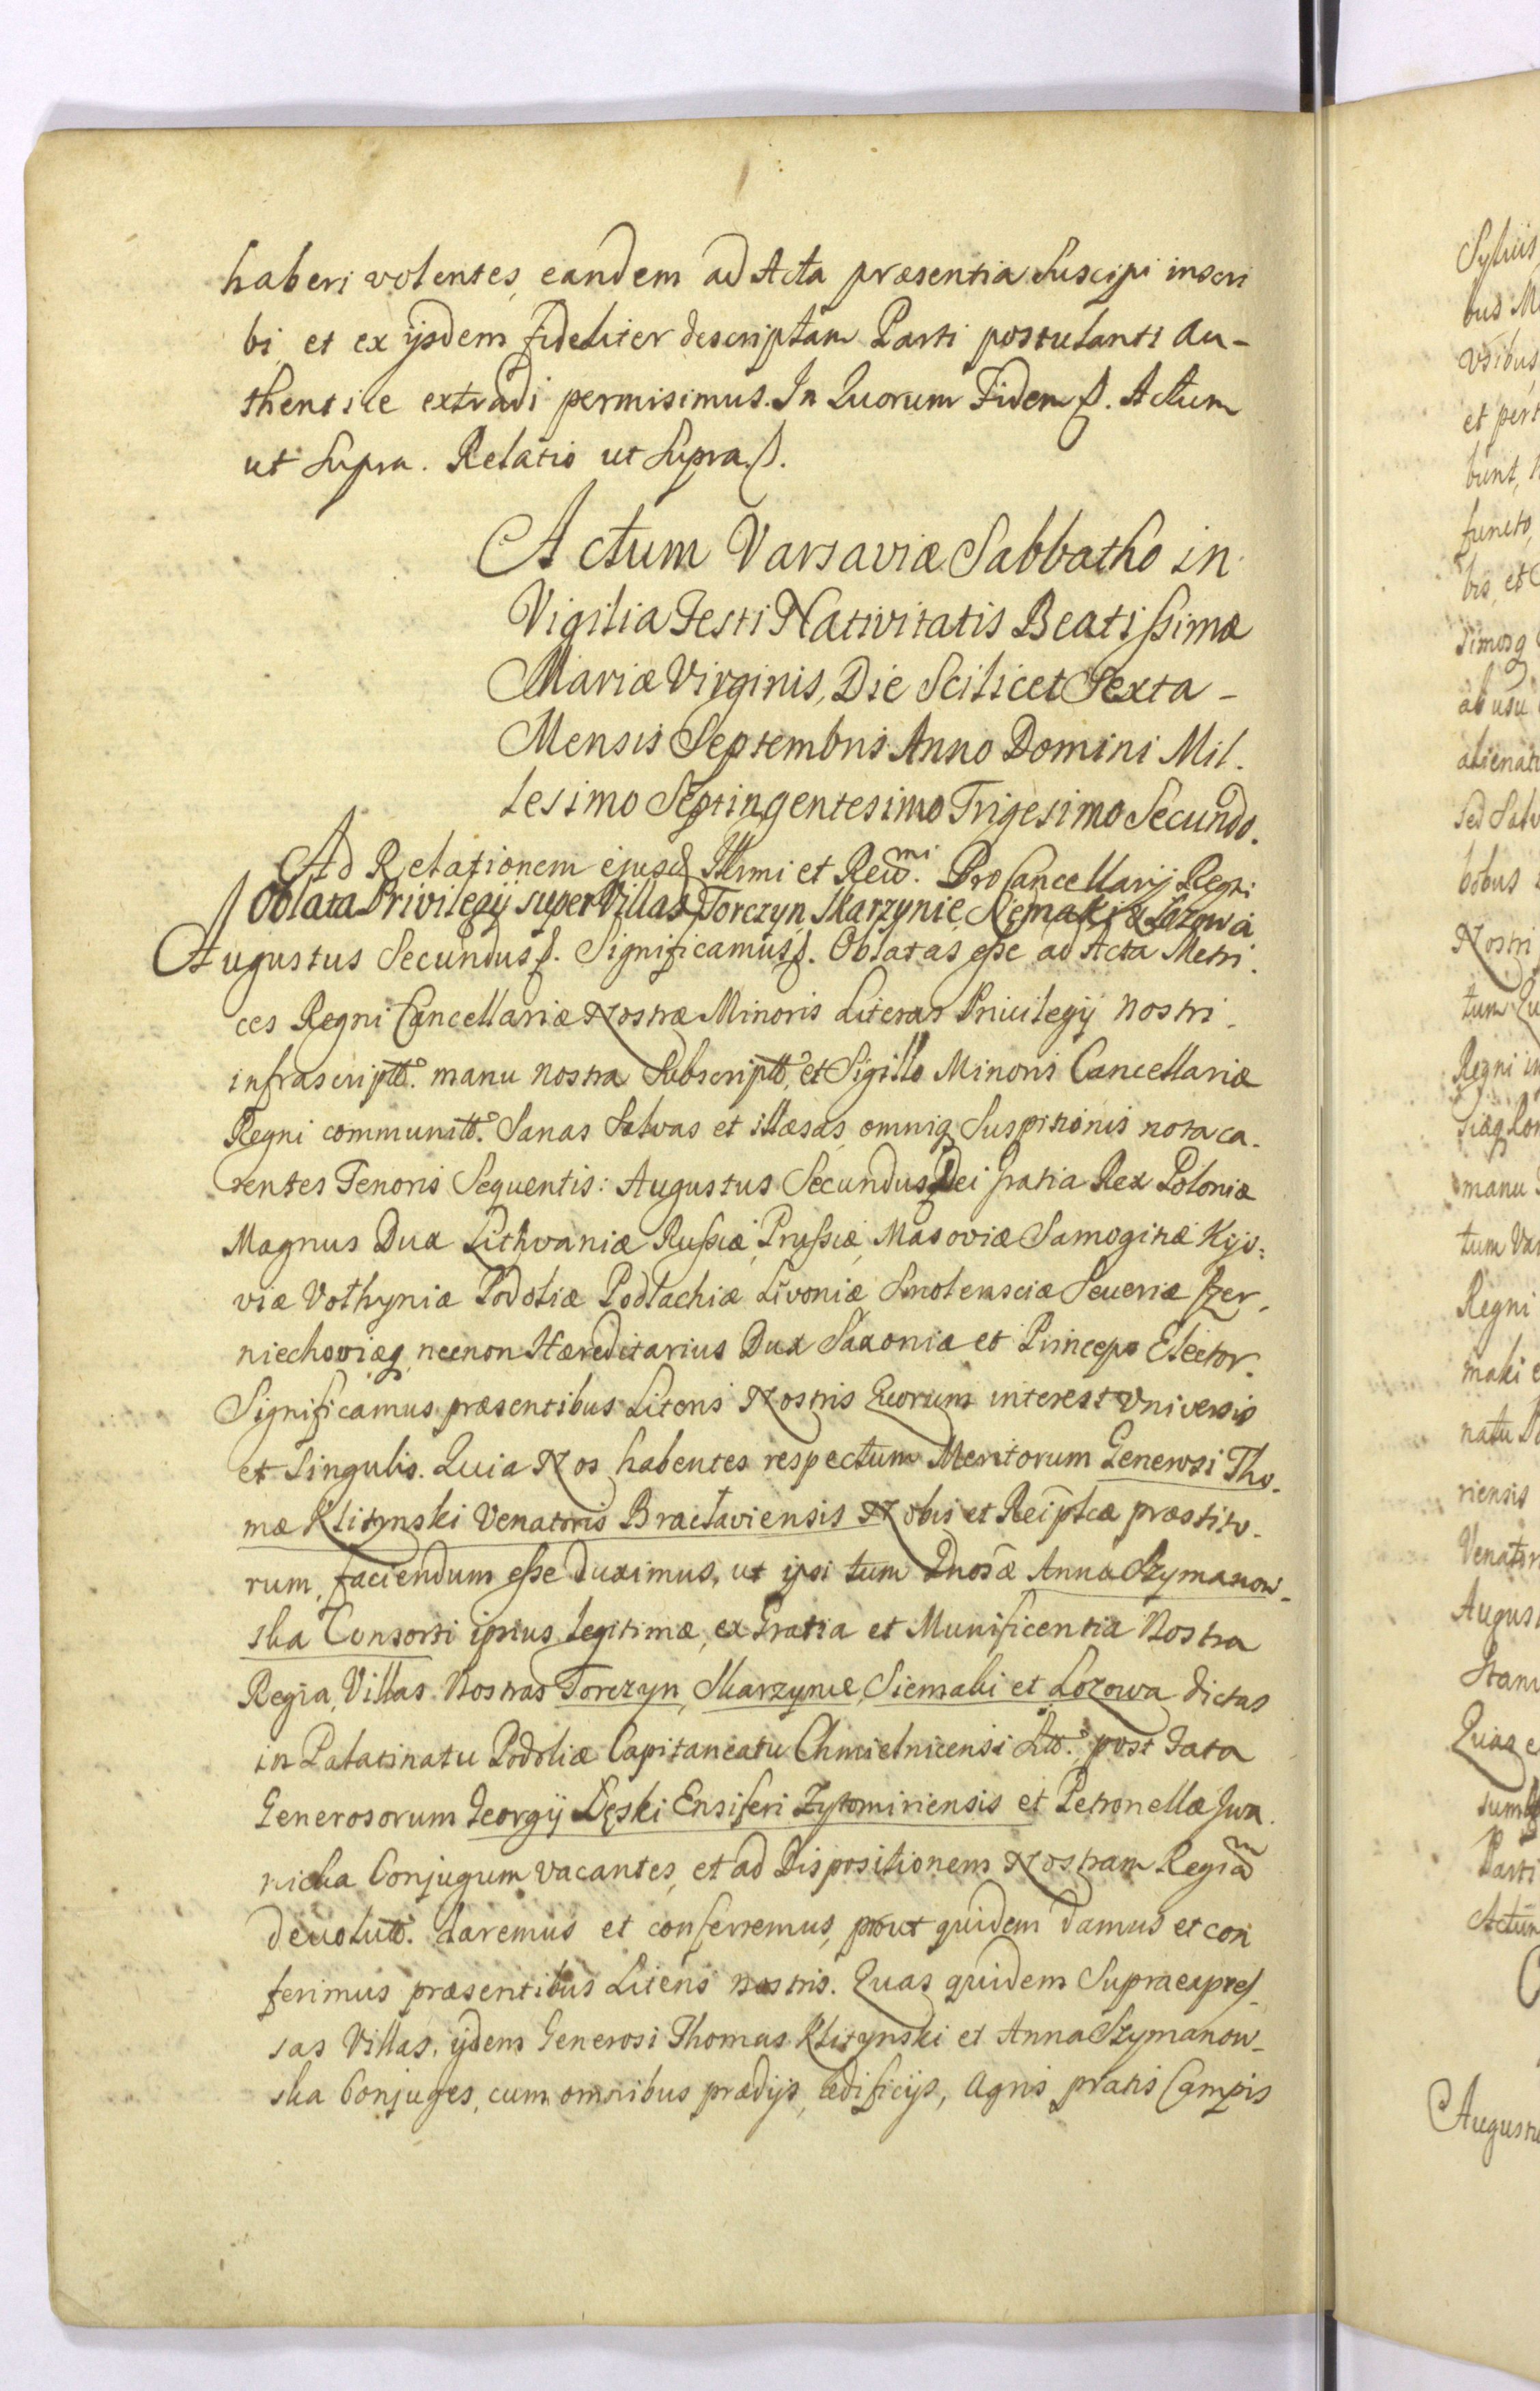 haberi volentes, eandem ad Acta præsentia Suscipi inscri
bi et ex ijsdem fideliter descriptam Parti postulanti Au-
thentice extradi permisimus. In Quorum Fidem ß. Actum
ut Supra. Relatio ut Supra ß.
Actum Varsaviæ Sabbatho in
Vigilia Festi Nativitatis Beatissimæ
Mariæ Virginis, Die Scilicet Sexta -
Mensis Septembris Anno Domini Mil.
lesimo Septingentesimo Trigesimo Secundo.
Ad Relationem ejusd Illrmi et Reẃ.mi Pro Cancellarij Regni
Oblata Privilegij super Villas Torczyn, Skarzynie, Siemaki & Lozowa
Augustus Secundus ß. Significamus ß. Oblatas esse ad Acta Metri.
ces Regni Cancellariæ Nostræ Minoris Literas Priuilegij nostri.
infrascriptt. manu nostra Subscriptt, et Sigillo Minoris Cancellariæ
Regni communitt. Sanas Salvas et illæsas, omniq Suspitionis nota ca.
rentes Tenoris Sequentis: Augustus Secundus Dei Gratia Rex Poloniæ
Magnus Dux Lithvaniæ Russiæ, Prussiæ, Masoviæ Samogitiæ Kijo:
viæ Volhyniæ Podoliæ Podlachiæ Livoniæ Smolensciæ Seueriæ Czer,
niechoviæq, necnon Hæreditarius Dux Saxoniæ et Princeps Elector.
Significamus præsentibus Literis Nostris Quorum interest Vniversis
et Singulis. Quia Nos habentes respectum Meritorum Generosi Tho.
mæ Klitynski Venatoris Braclaviensis Nobis et Reiptcæ præstito.
rum, faciendum esse duximus, ut ipsi tum Gnosæ Annæ Szymanow-
ska Consorti ipsius legitimæ, ex Gratia et Munificentia Nostra
Regia, Villas Nostras Torczyn, Skarzynie, Siemaki et Lozowa dictas
in Palatinatu Podoliæ Capitaneatu Chmielnicensi Stt. post fata
Generosorum Georgij Dęski Ensiferi Zytomiriensis et Petronellæ Jwa.
nicka Conjugum vacantes, et ad Dispositionem Nostram Regiam
deuolutt. daremus et conferremus, prout quidem damus et con
ferimus præsentibus Literis nostris. Quas quidem Supraexpres
sas Villas, ijdem Generosi Thomas Klitynski et Anna Szymanow-
ska Conjuges, cum omnibus prædijs, ædificijs, Agris pratis Campis